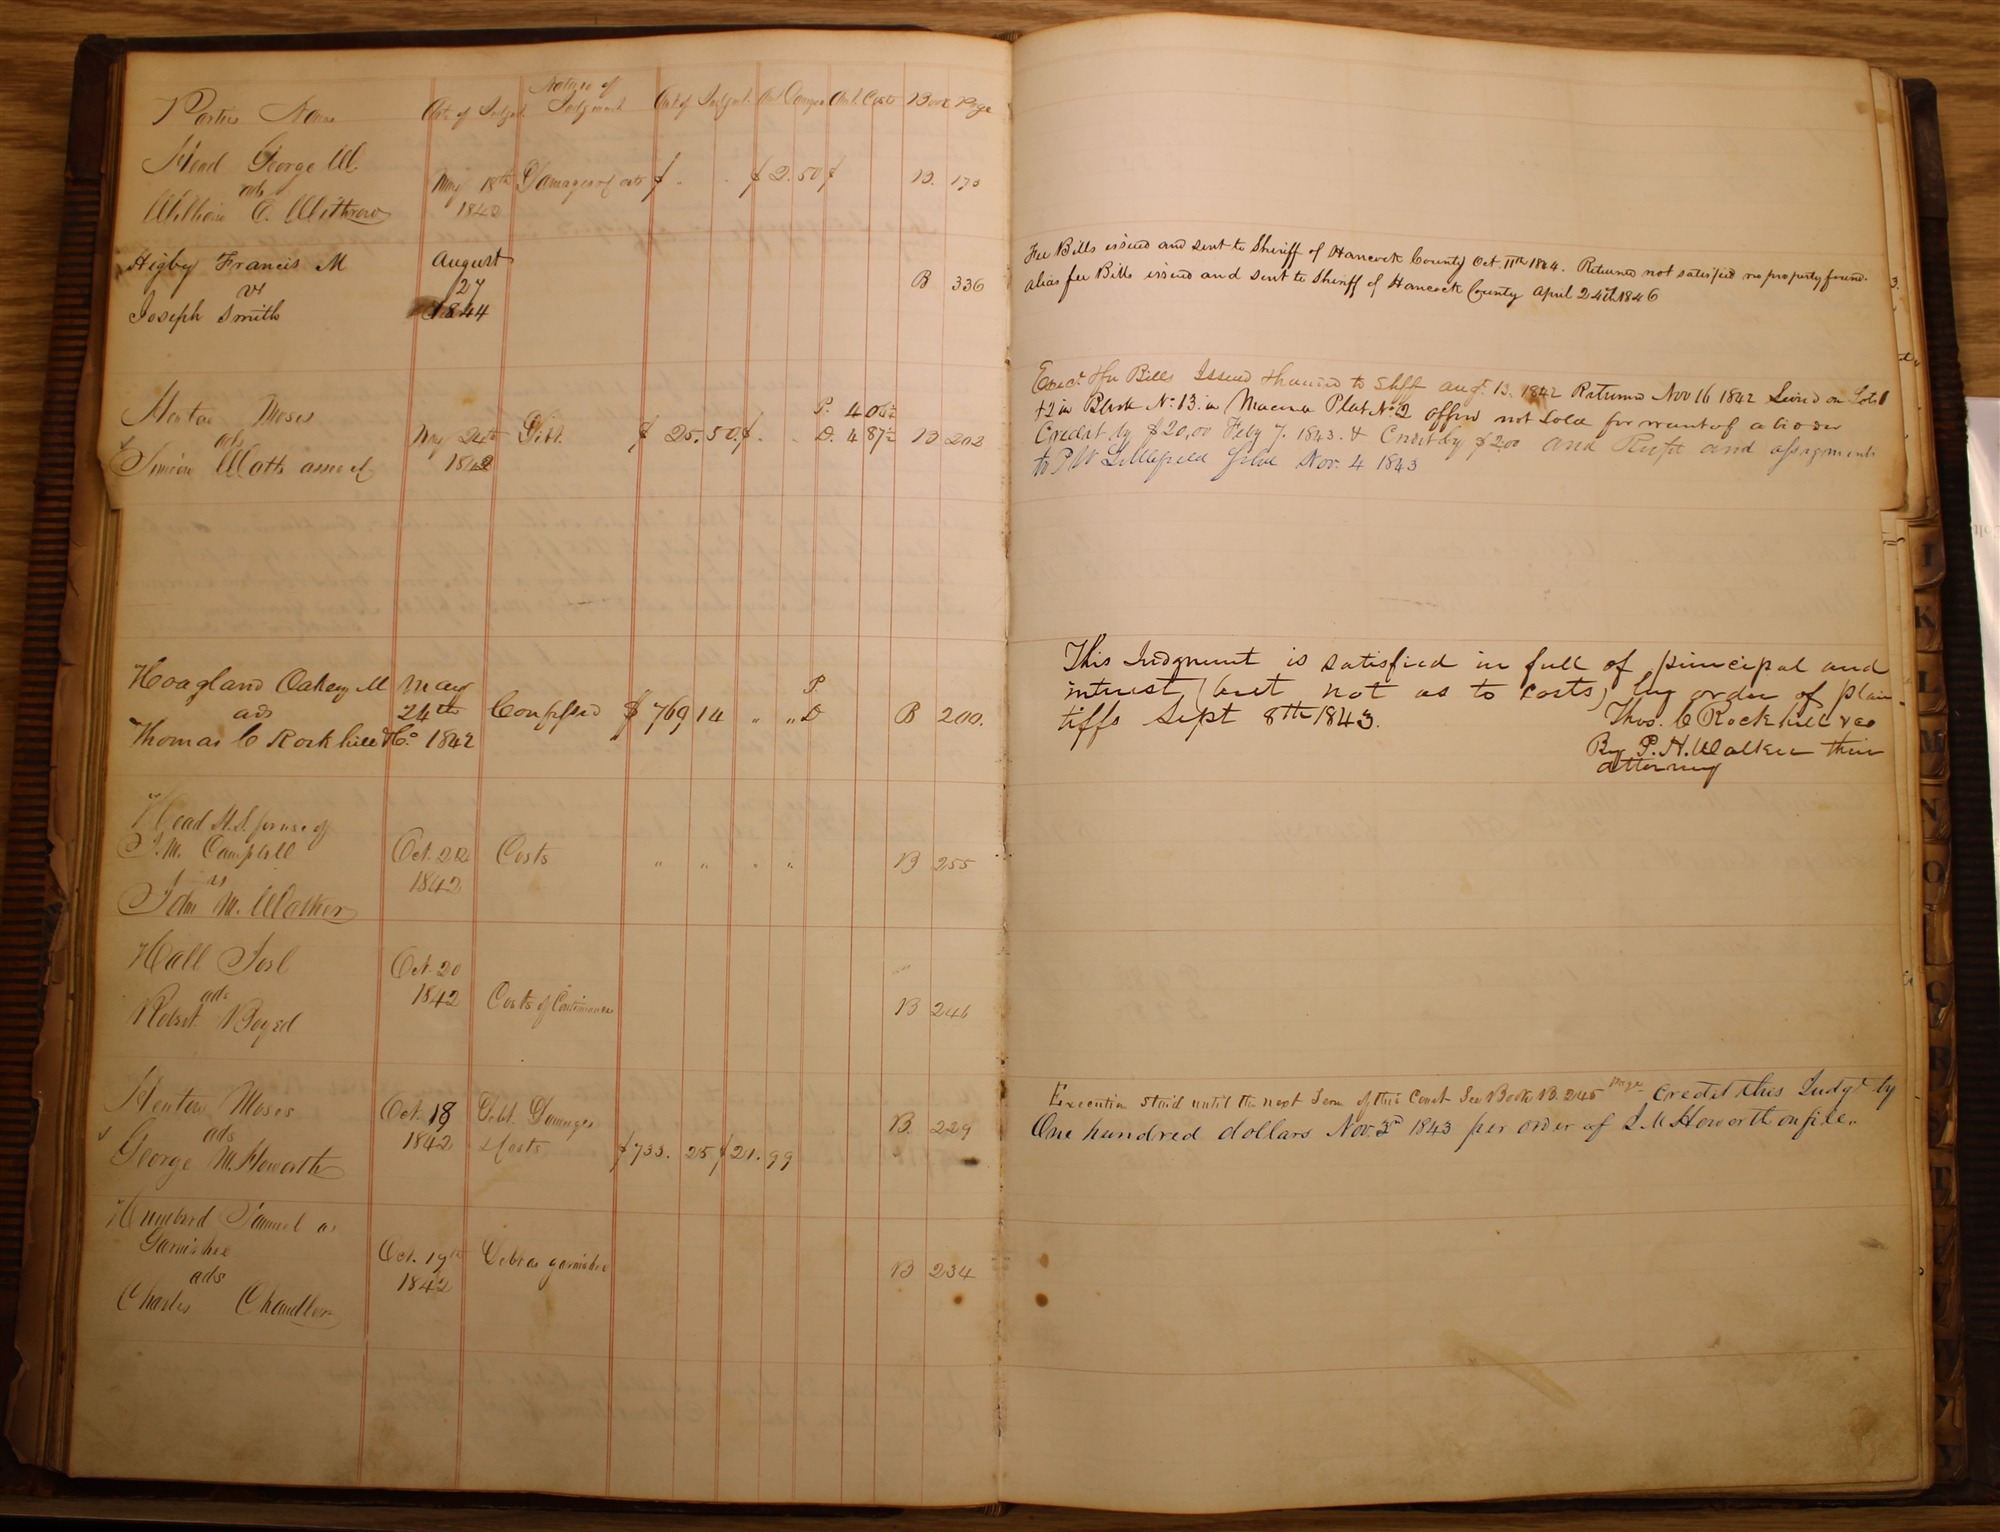 Parties Name Date of Judgt. Nature of Judgment Amt of Judgmt. Amt Damges Amt. Costs Book Page
Head George W. ads William C. Withrow May 18th 1842 Damages & costs $ $ 2.50 $ B. 173
Higby Francis M vs Joseph Smith August 27 1844 B 336
Henton Moses ads Simeon Watts May 24th 1842 Debt. $ 25.50 $ P. 4 06½ D. 4 87½ B 202
Hoagland Oakey M ads Thomas C Rockhill & Co. May 24th 1842 Confessed $ 769 14 " " P D B 200.
Head H.S. for use of J.M. Campbell vs John M. Walker Oct. 22 1842 Costs " " " " B 255
Hall Joel ads Robert Boyed Oct. 20 1842 Costs of Continuance B 246
Henton Moses ads George M. Howorth Oct. 18 1842 Debt. Damages & Costs $ 733. 25 $ 21.99 B. 229
Humbard Samuel as Garnishee ads Charles Chandler Oct. 19th 1842 Debt as garnishee B 234
Fee Bills issued and sent to Sheriff of Hancock County Oct. 11th 1844. Returned not satisfied no property found.
alias fee Bills issued and sent to Sheriff of Hancock County April 24th 1846
Exect. & fee Bills Issued to Shff augt. 13. 1842 Returned Nov 16 1842 Levied on Lots 1
& 2 in Block No. 13. in Macomb Plat No. 2 offered not sold for want of a bidder
Credit by $20,00 Feby 7. 1843. & Credit by $2.00 and Rect and assignment
to P W Nov. 4 1843
This Judgment is satisfied in full of principal and
interest, (but not as to costs) by order of plain
tiffs Sept 8th 1843. Thos. C Rockhill & co
By P. H. Walker their
attorney
Execution staid until the next Term of this Court See Book B. 245 page - Credit this Judgt by
One hundred dollars Nov. 3d 1843 per order of G M Howorth on file.
I
K
L
M
N
O